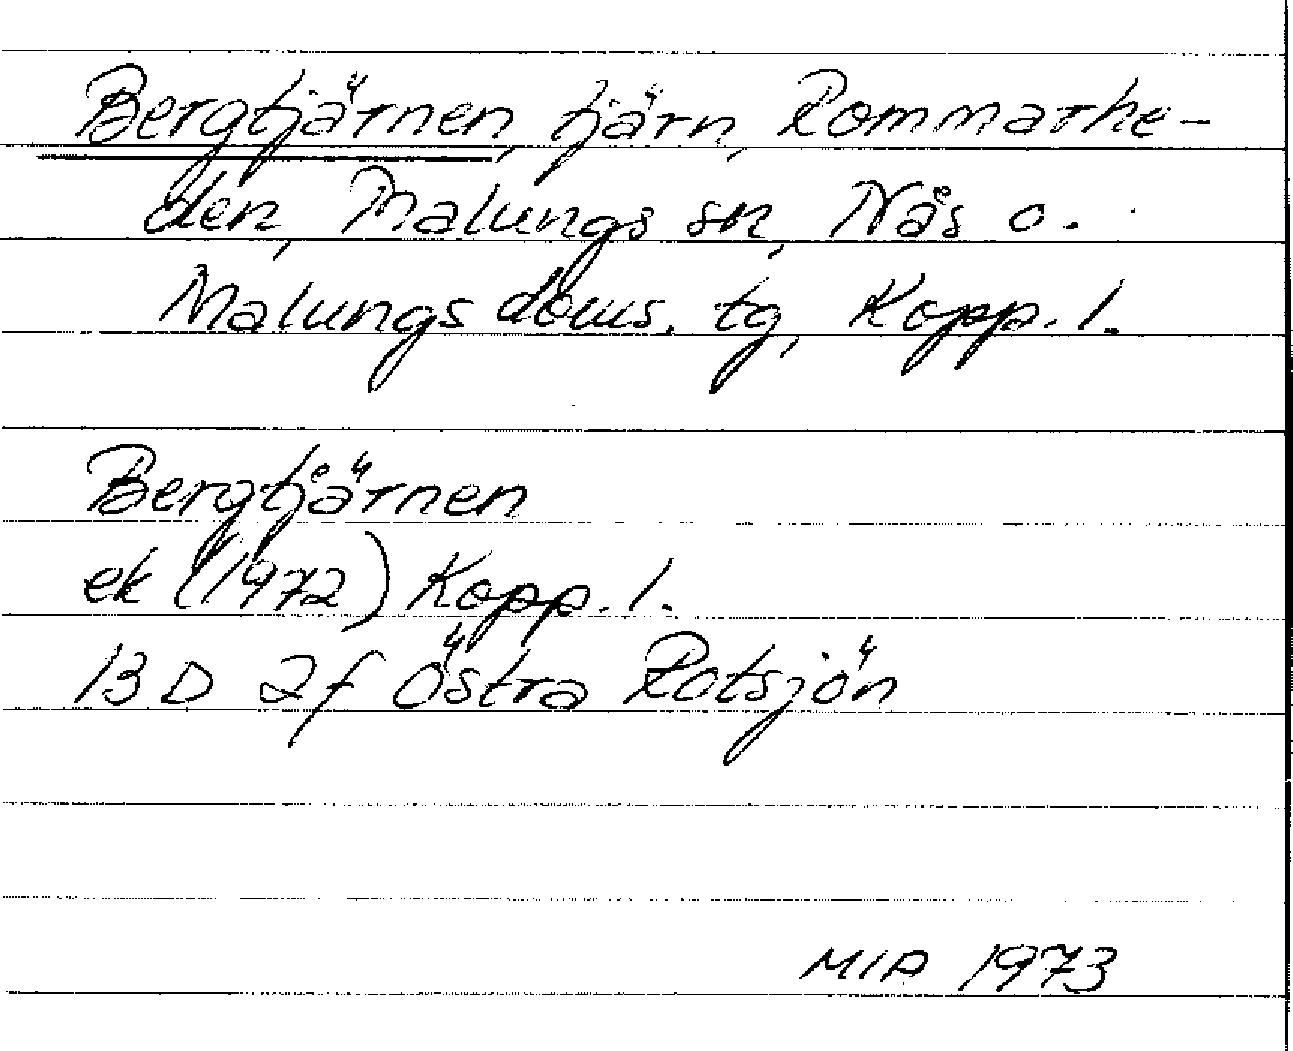 Bergtjärnen, tjärn, Rommarhe-
den, Malungs sn, Nås o.
Malungs doms. tg, Kopp. l.
Bergtjärnen
ek (1972) Kopp. l.
13 D 2f Östra Rotsjön
MIP 1973